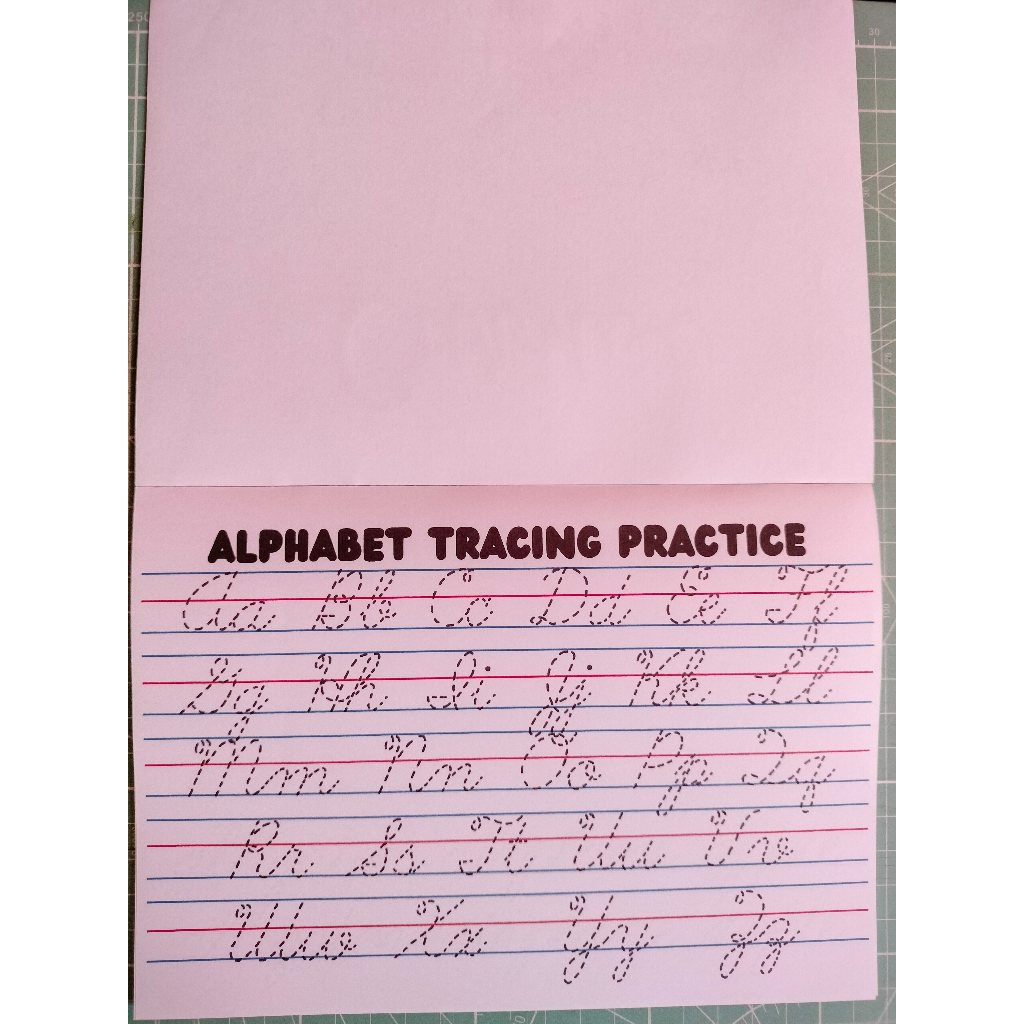 ALPHABET TRACING PRACTICE
Aa Bb Cc Dd Ee Ff
Gg Hh Ii Jj Kk Ll
Mm Nn Oo Pp Qq
Rr Ss Tt Uu Vv
Ww Xx Yy Zz